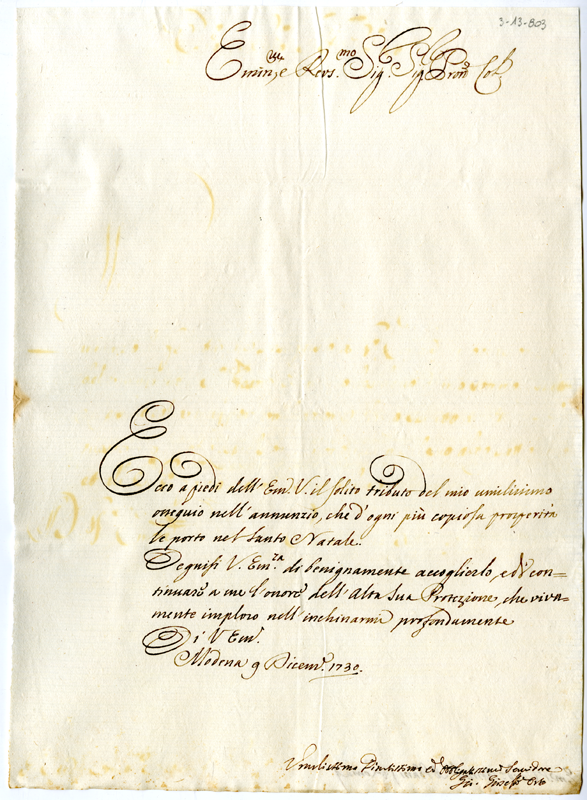 3-13-803
Emin.ze e Revs.mo Sig. Sig. Pron. Col.
Ecco a piedi dell'Em.V. il solito tributo del mio umilissimo
ossequio nell'annunzio, che d'ogni più copiosa prosperità
le porto nel Santo Natale.
Degnisi V. Em.za di benignamente accoglierlo, ed con=
tinuare a me l'onore dell'Alta Sua Protezione, che viva=
mente imploro nell'inchinarmi profondamente
Di V Em.
Modena 9 Dicem. 1730.
Umilissimo Divotissimo ed Obligatissimo Servidore
Giuseppe